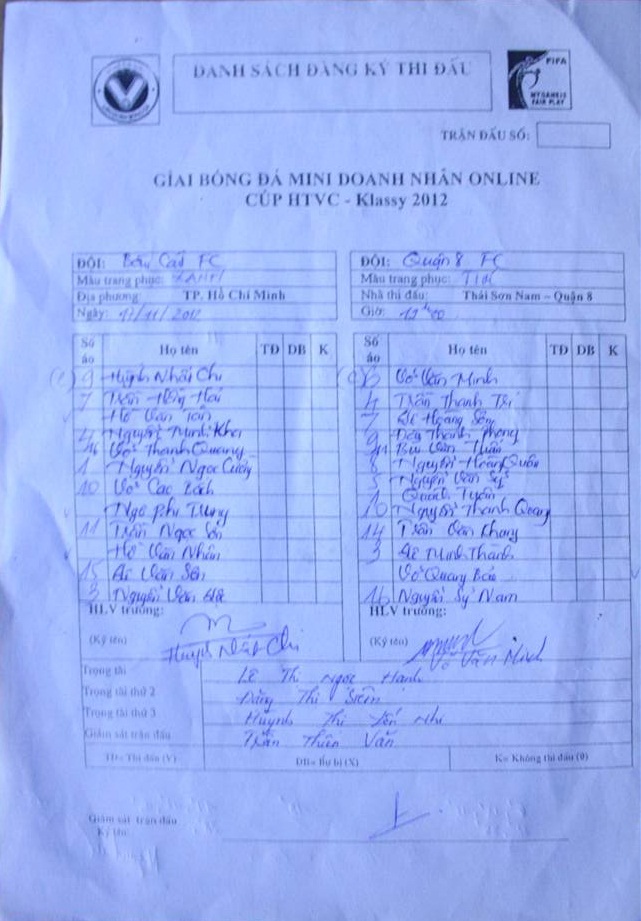 DANH SÁCH ĐĂNG KÝ THI ĐẤU
FIFA
MY GAME IS
FAIR PLAY
TRẬN ĐẤU SỐ:
GIẢI BÓNG ĐÁ MINI DOANH NHÂN ONLINE
CÚP HTVC - Klassy 2012
ĐỘI: FC
Màu trang phục:
Địa phương: TP. Hồ Chí Minh
Ngày: /11/2012
ĐỘI: Quận 8 FC
Màu trang phục: Tím
Nhà thi đấu: Thái Sơn Nam – Quận 8
Giờ:
Số áo Họ tên TĐ DB K
(C) 9 Huỳnh Nhất Chi
7 Trần Hồng Hải
Hồ Văn Tân
4 Nguyễn Minh Khoa
16 Võ Thanh Quang
1 Nguyễn Ngọc Cường
10 Võ Cao Bách
Ngô Phi Trung
11 Trần Ngọc Sơn
Hồ Văn Nhân
15 Văn Sên
3 Nguyễn Văn
Số áo Họ tên TĐ DB K
(C) 6 Võ Văn Minh
4 Trần Thanh Trí
7 Hoàng Sơn
9 Thanh Phong
11 Bùi Văn Thân
8 Nguyễn Hoàng Quân
5 Nguyễn Văn Sỹ
1 Tuấn
10 Nguyễn Thanh Quang
14 Trần Văn Khang
3 Minh Thanh
Võ Quang Bảo
16 Nguyễn Sỹ Nam
HLV trưởng:
(Ký tên)
Huỳnh Nhất Chi
HLV trưởng:
(Ký tên)
Võ Văn Minh
Trọng tài Lê Thị Ngọc Hạnh
Trọng tài thứ 2 Đặng Thị Siêm
Trọng tài thứ 3 Huỳnh Thị Yến Nhi
Giám sát trận đấu Trần Thiên Vân
TĐ= Thi đấu (V) DB= Dự bị (X) K= Không thi đấu (0)
Giám sát trận đấu
Ký tên